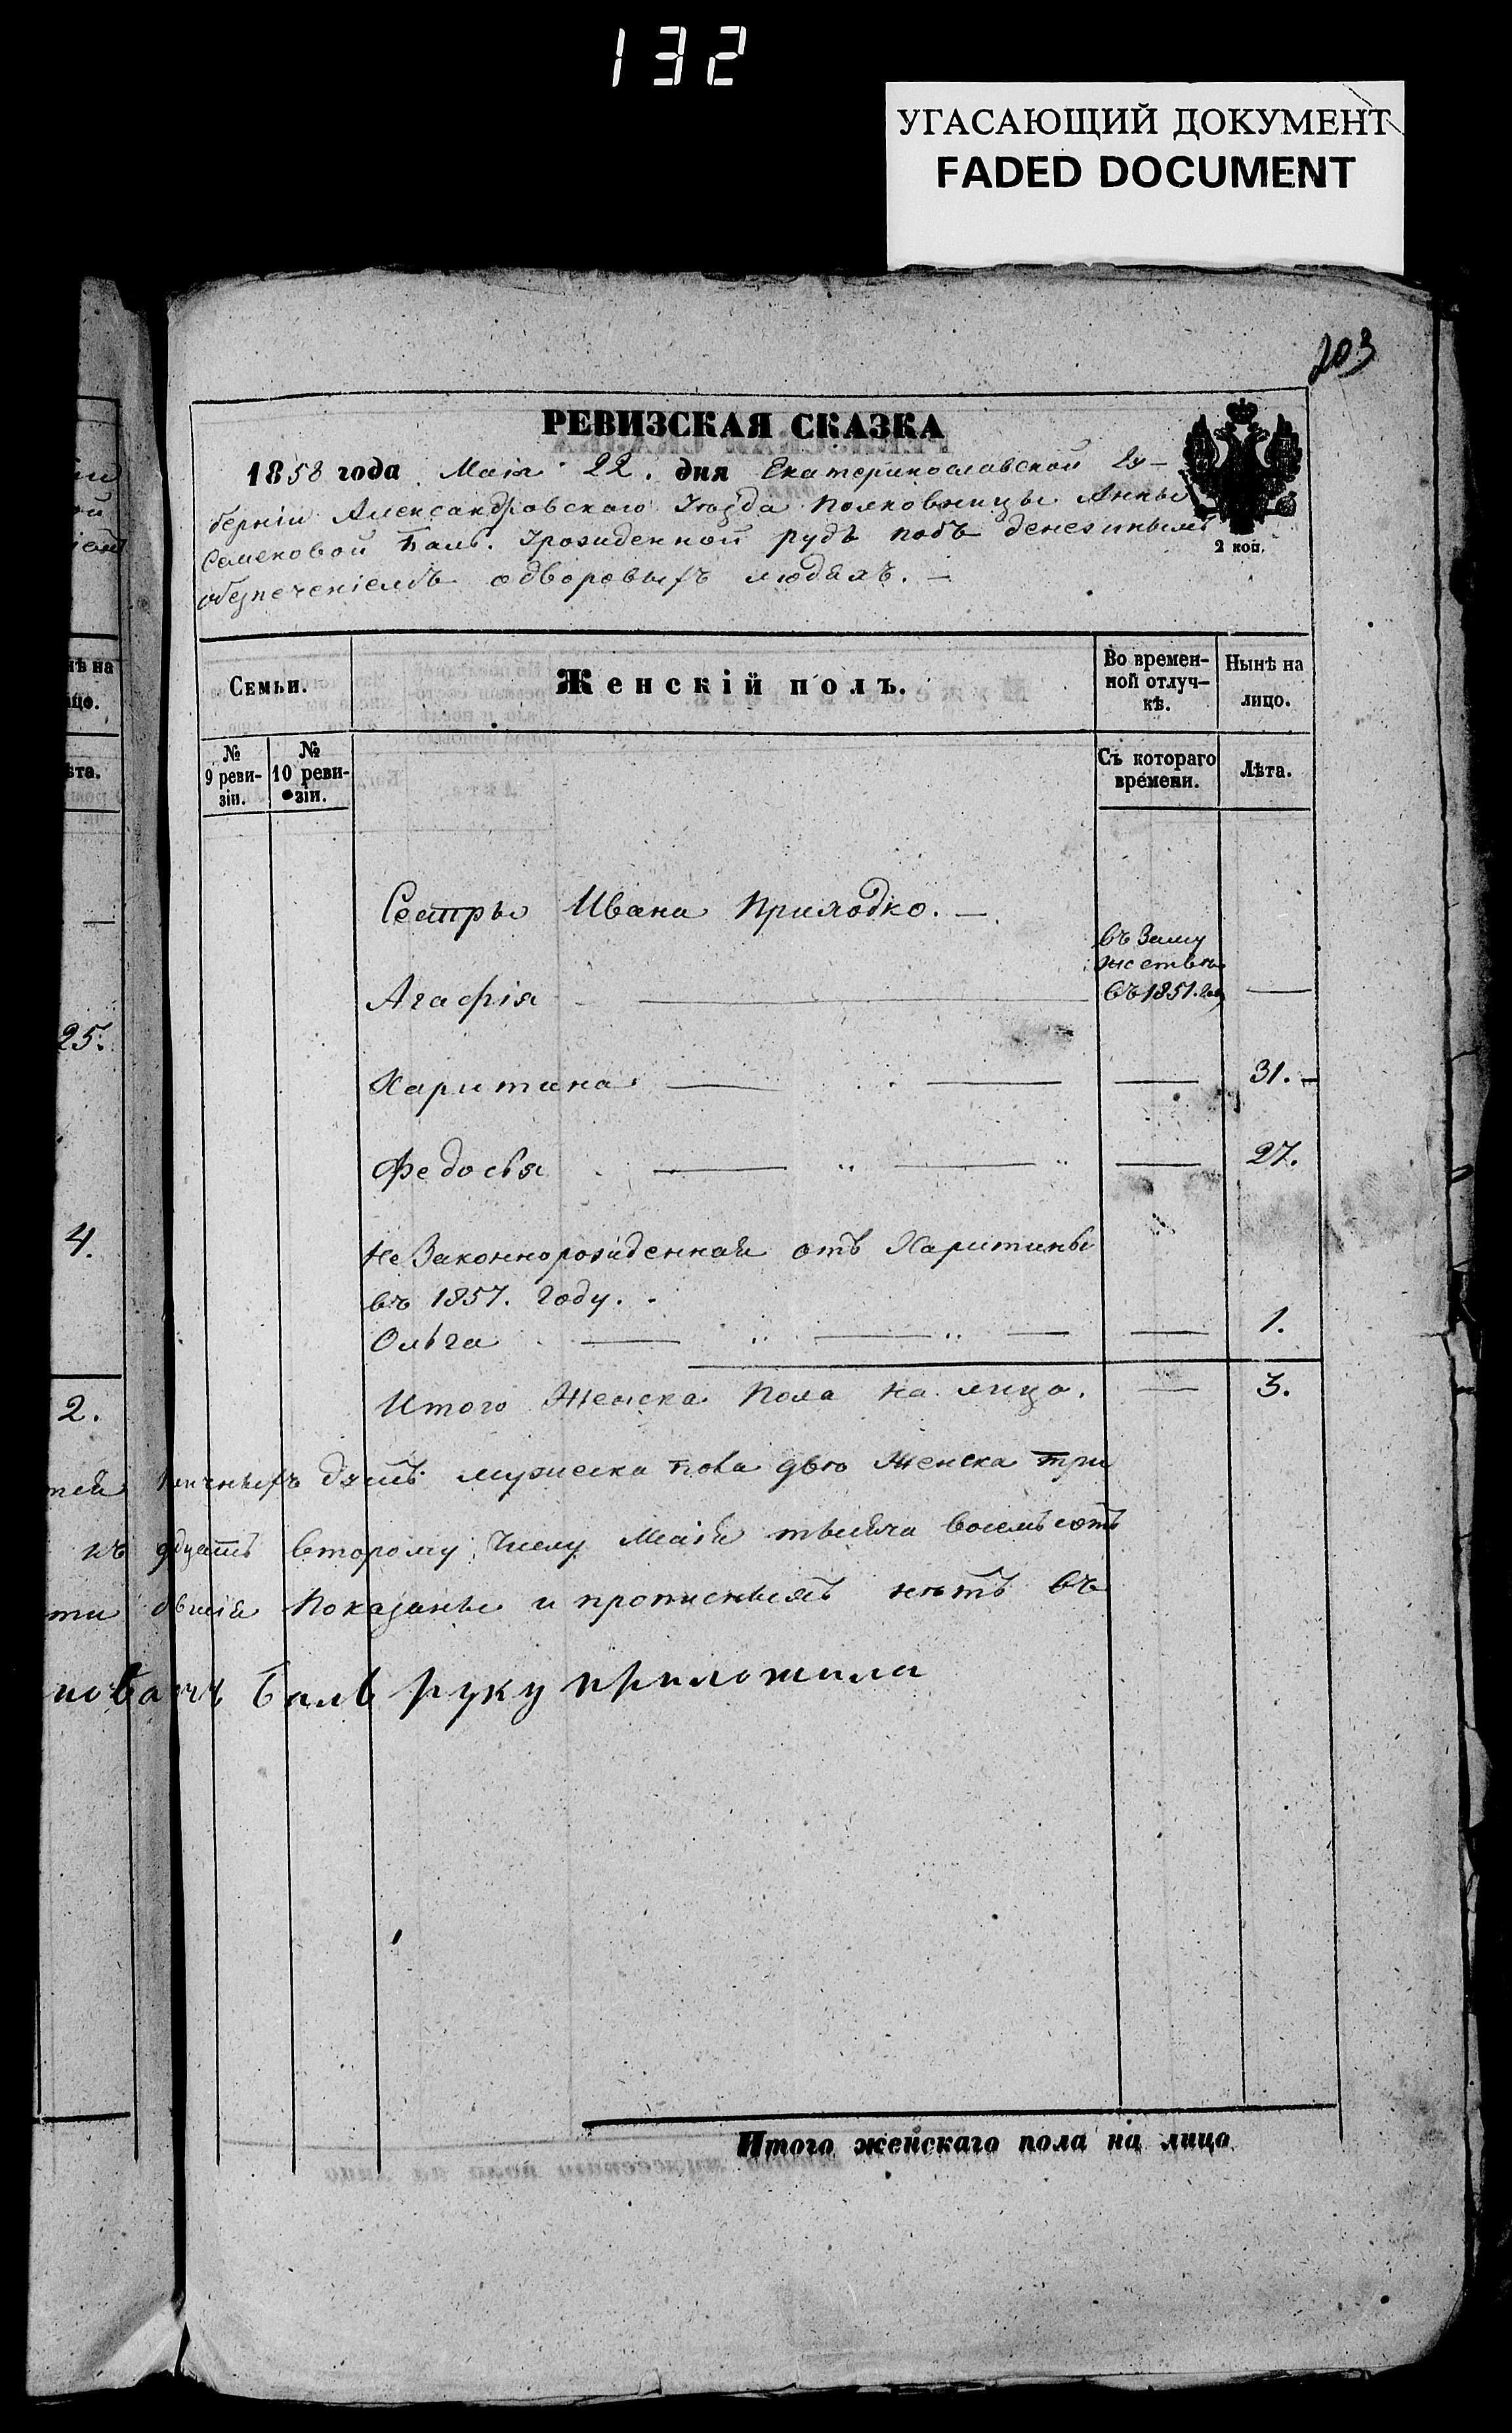 132
УГАСАЮЩИЙ ДОКУМЕНТ
FADED DOCUMENT
203
РЕВИЗСКАЯ СКАЗКА
1858 года Маія 22. дня Екатеринославской Гу-
берніи Александровскаго Уѣзда Полковницы Анны
Семеновой Баль. Урожденной Рудь подъ денежнымъ
обезпеченіемъ одворовыхъ людяхъ. —
2 коп.
Семьи.
Женскій полъ.
Во времен-
ной отлуч-
кѣ.
Нынѣ на
лицо.
№
9 реви-
зіи.
№
10 реви-
зіи.
Съ котораго
времени.
Лѣта.
Сестры Ивана Приходко. —
Агафія — въ Заму
жествѣ
въ 1851. год —
Харитина — — — 31. —
Федосья — „ — „ — 27.
Не Законнорожденная отъ Харитины
въ 1857. Году.
Ольга — „ — „ — — 1.
Итого Женска Пола на лицо. — 3.
25.
4.
2.
душъ мужеска пола двѣ Женска три
къ двацать второму Числу Маія тысяча восемьсотъ
Показаны и прописныхъ нѣтъ въ
Баль руку приложила
Итого женскаго пола на лицо